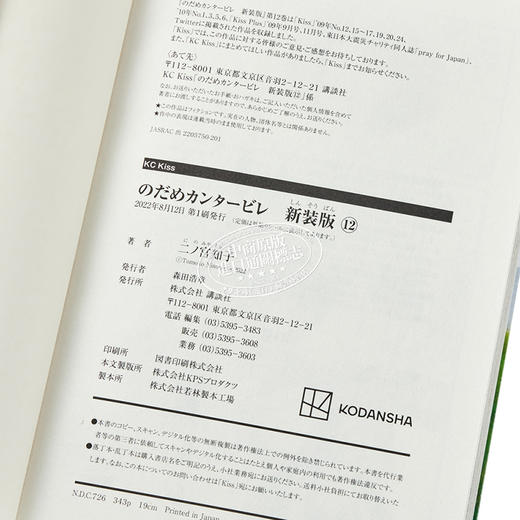 『のだめカンタービレ 新装版』第12巻は「Kiss」'09年No.12、15〜17、19、20、24、
'10年No.1、3、5、6、「Kiss Plus」'09年9月号、11月号、東日本大震災チャリティ同人誌「pray for Japan」、
Twitterに掲載された作品を収録しました。
「Kiss」では、この作品に対する皆様のご意見・ご感想をお待ちしております。
また、「KC Kiss」にまとめてほしい作品がありましたら、「Kiss」までお知らせください。
〈あて先〉
〒112-8001 東京都文京区音羽2-12-21 講談社
KC Kiss『のだめカンタービレ 新装版⑫』係
なお、お送りいただいたお手紙・おハガキは、ご記入いただいた個人情報を含めて
著者にお渡しすることがありますので、あらかじめご了解のうえ、お送りください。
★この作品はフィクションです。実在の人物、団体名等とは関係ありません。
★作中の表現は連載当時のまま使用しております。
JASRAC 出 2205750-201
KC Kiss
のだめカンタービレ 新装版 ⑫
しん そう ばん
2022年8月12日 第1刷発行
著者 二ノ宮知子
発行者 森田浩章
発行所 株式会社 講談社
〒112-8001 東京都文京区音羽2-12-21
電話 編集 (03)5395-3483
販売 (03)5395-3608
業務 (03)5395-3603
印刷所 図書印刷株式会社
本文製版所 株式会社KPSプロダクツ
製本所 株式会社若林製本工場
KODANSHA
●本書のコピー、スキャン、デジタル化等の無断複製は著作権法上での例外を除き禁じられています。本書を代行業
者等の第三者に依頼してスキャンやデジタル化することはたとえ個人や家庭内の利用でも著作権法違反です。
●落丁本・乱丁本は購入書店名をご明記のうえ、小社業務宛にお送りください。送料小社負担にてお取り替えいた
します。なお、この本についてのお問い合わせは「Kiss」宛にお願いいたします。
N.D.C.726 343p 19cm Printed in Japan